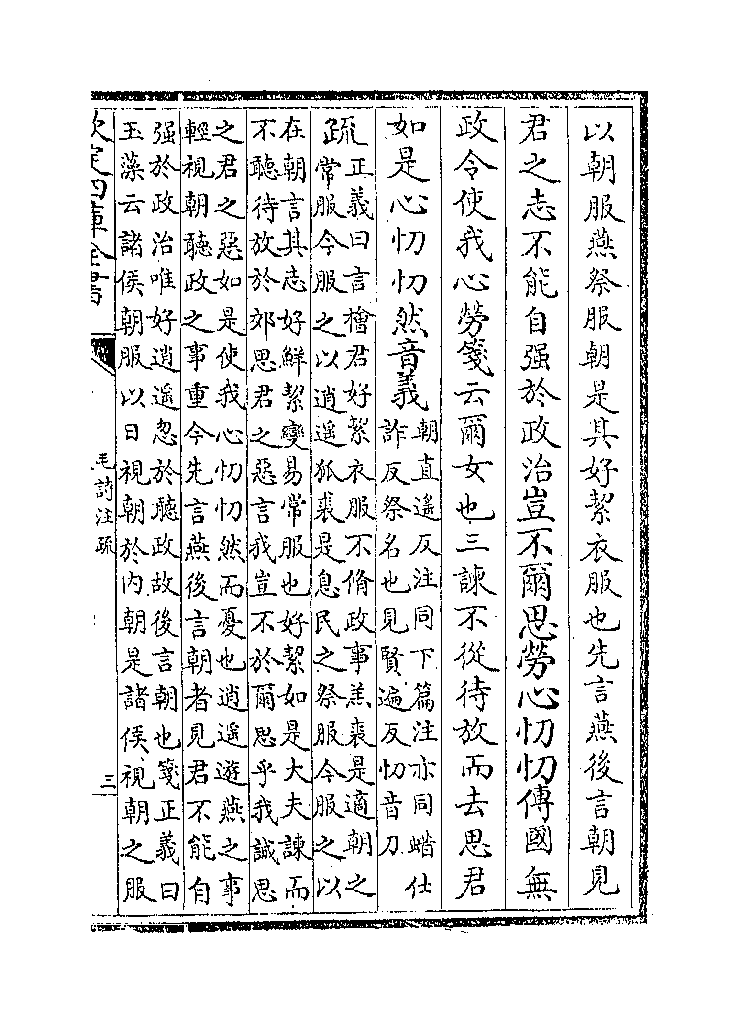 以朝服燕祭服朝是其好絜衣服也先言燕後言朝見
君之志不能自强於政治豈不爾思勞心忉忉傳國無
政令使我心勞箋云爾女也三諫不從待放而去思君
如是心忉忉然音義
朝直遥反注同下篇注亦同蜡仕
詐反祭名也見賢遍反忉音刀
疏
正義曰言檜君好絜衣服不脩政事羔裘是適朝之
常服今服之以逍遥狐裘是息民之祭服今服之以
在朝言其志好鮮絜變易常服也好絜如是大夫諫而
不聽待放於郊思君之惡言我豈不於爾思乎我誠思
之君之惡如是使我心忉忉然而憂也逍遥遊燕之事
輕視朝聽政之事重今先言燕後言朝者見君不能自
强於政治唯好逍遥忽於聽政故後言朝也箋正義曰
玉藻云諸侯朝服以日視朝於内朝是諸侯視朝之服
欽定四庫全書
毛詩注疏
三